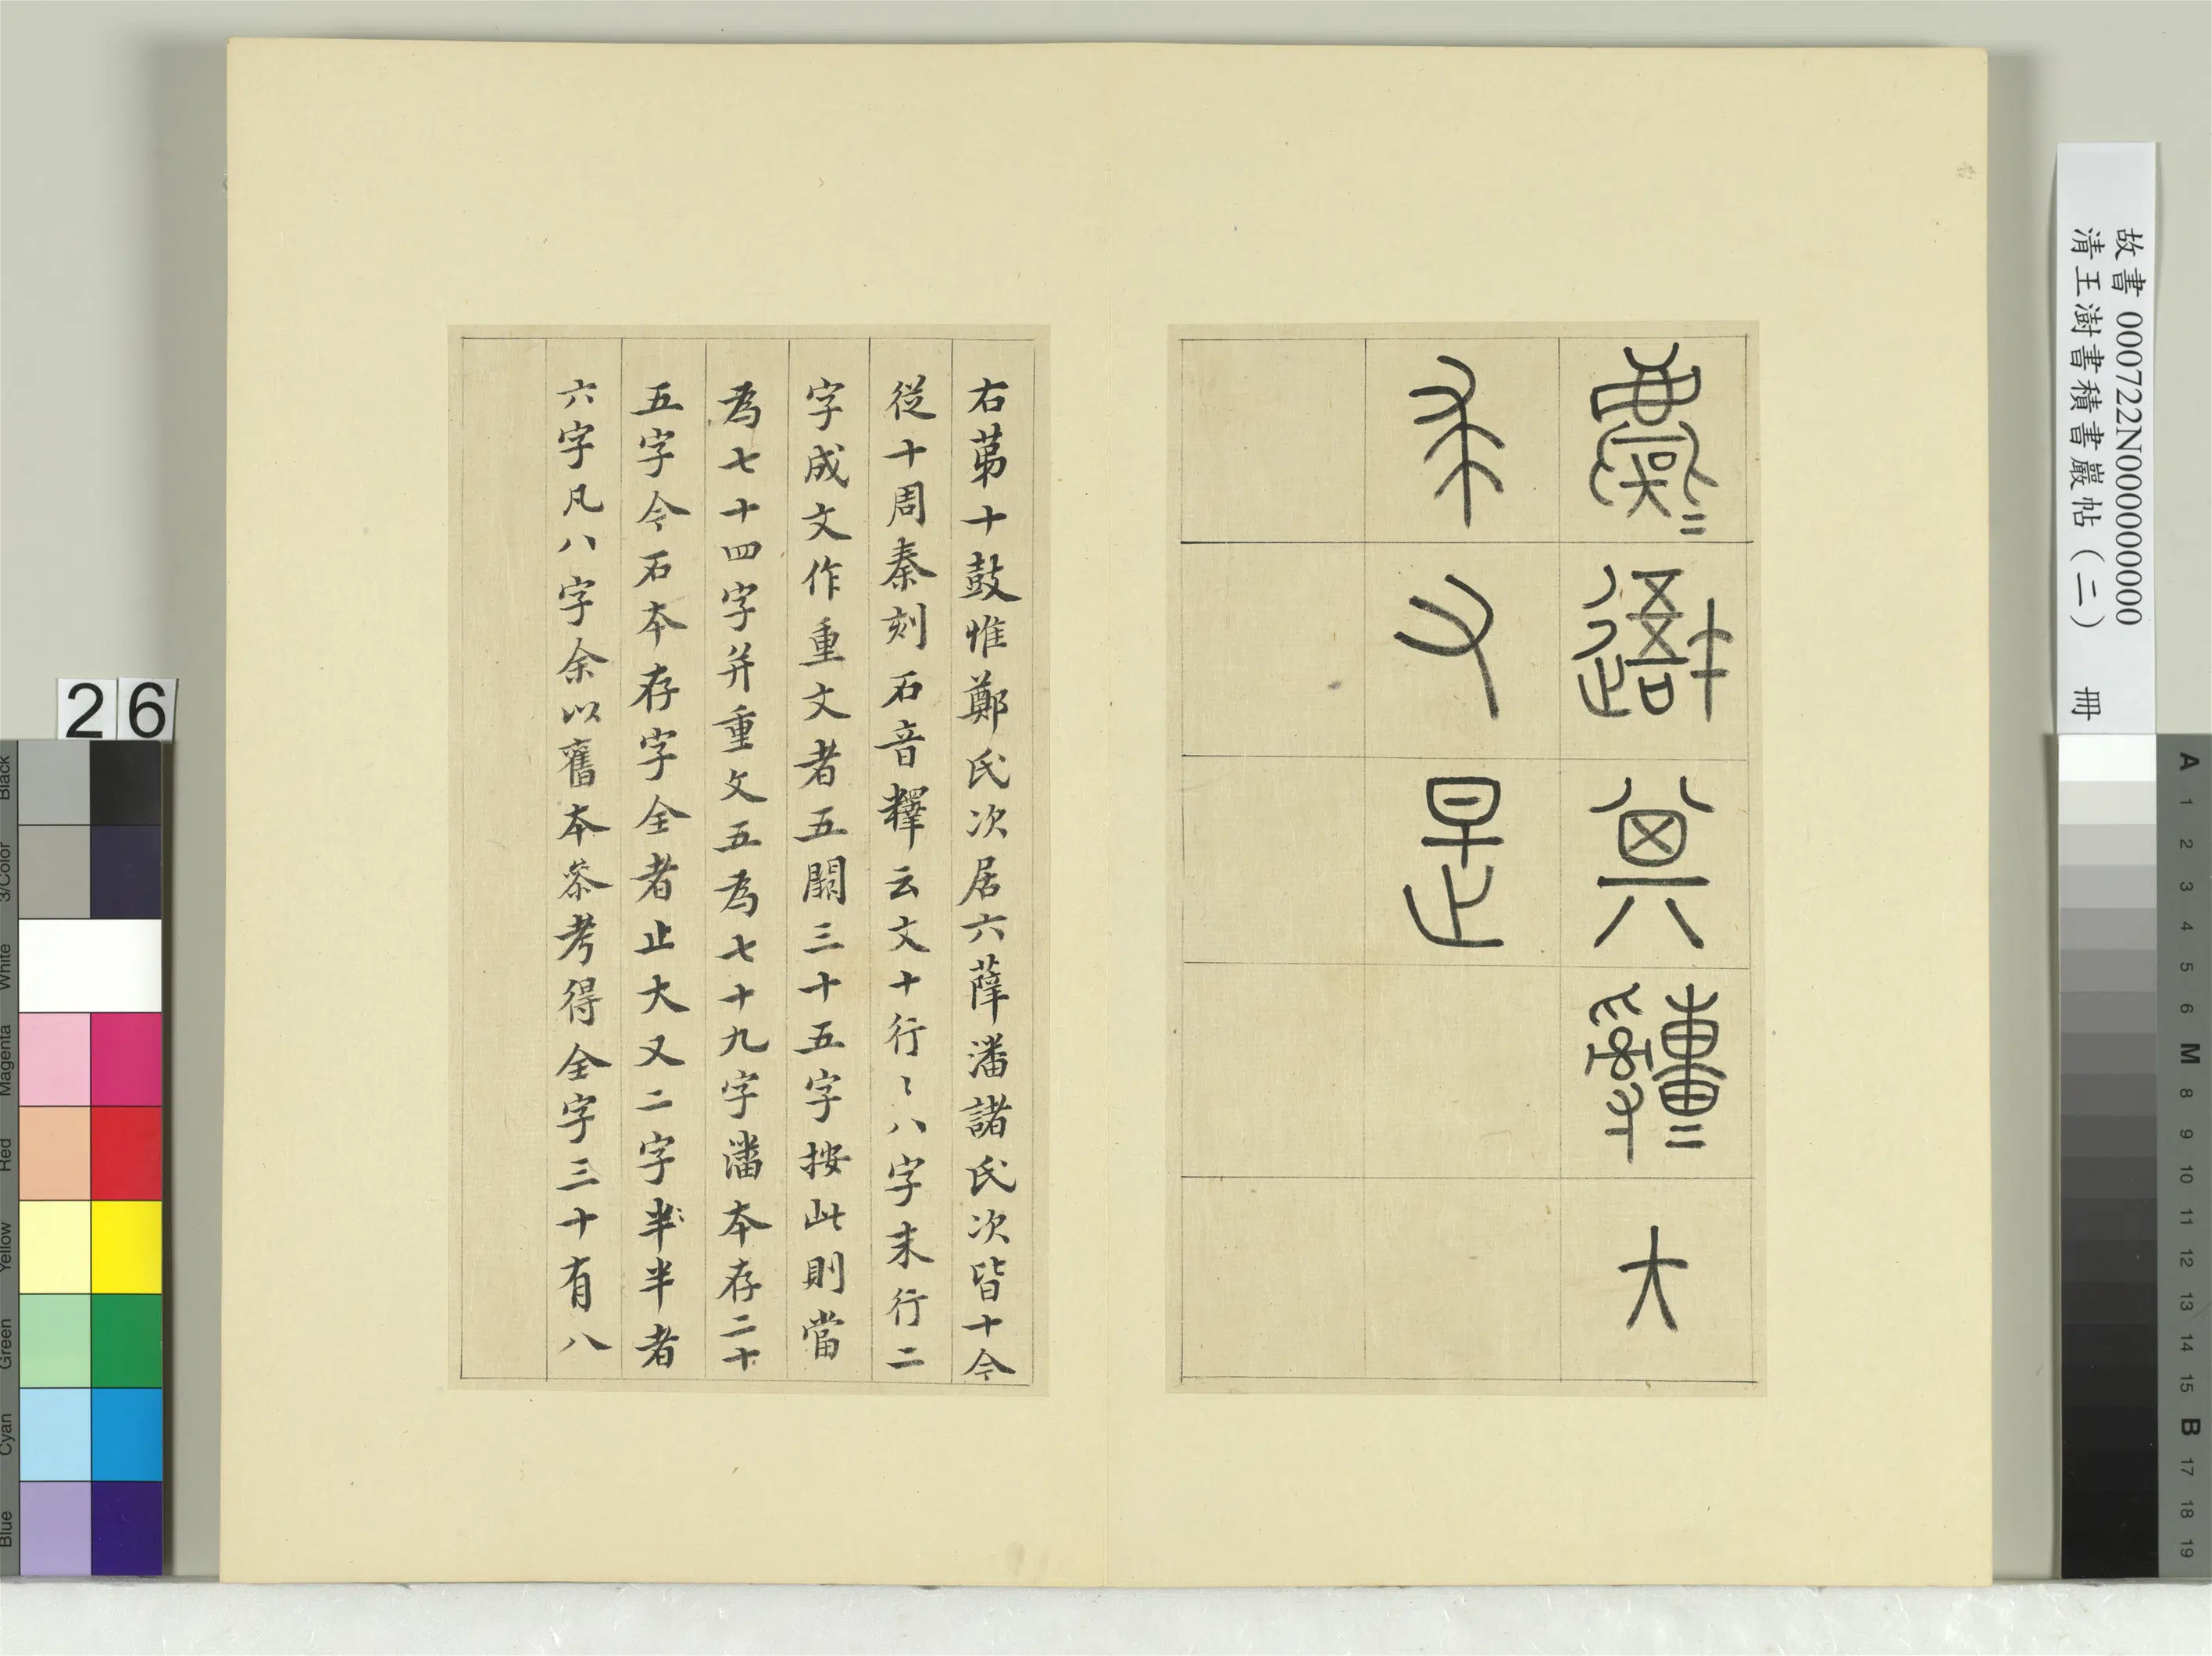 故書 000722N000000000
清王澍書積書巖帖（二） 冊
麌= 其 大
求又是
右苐十鼓惟鄭氏次居六薛潘諸氏次皆十今
從十周秦刻石音釋云文十行〻八字末行二
字成文作重文者五闕三十五字按此則當
為七十四字并重文五為七十九字潘本存二十
五字今石本存字全者止大又二字半半者
六字凡八字余以舊本叅考得全字三十有八
26
Black
3/Color
White
Magenta
Red
Yellow
Green
Cyan
Blue
A 1 2 3 4 5 6 M 8 9 10 11 12 13 14 15 B 17 18 19